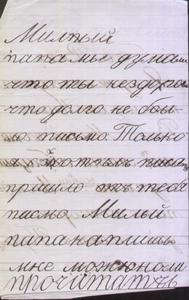 Милпый
папа мы дума
что ты нездоров
что долго не бы
ло письма. Только
пришло отъ тебя
письмо. Милый
папа напишь
мне
прочитать